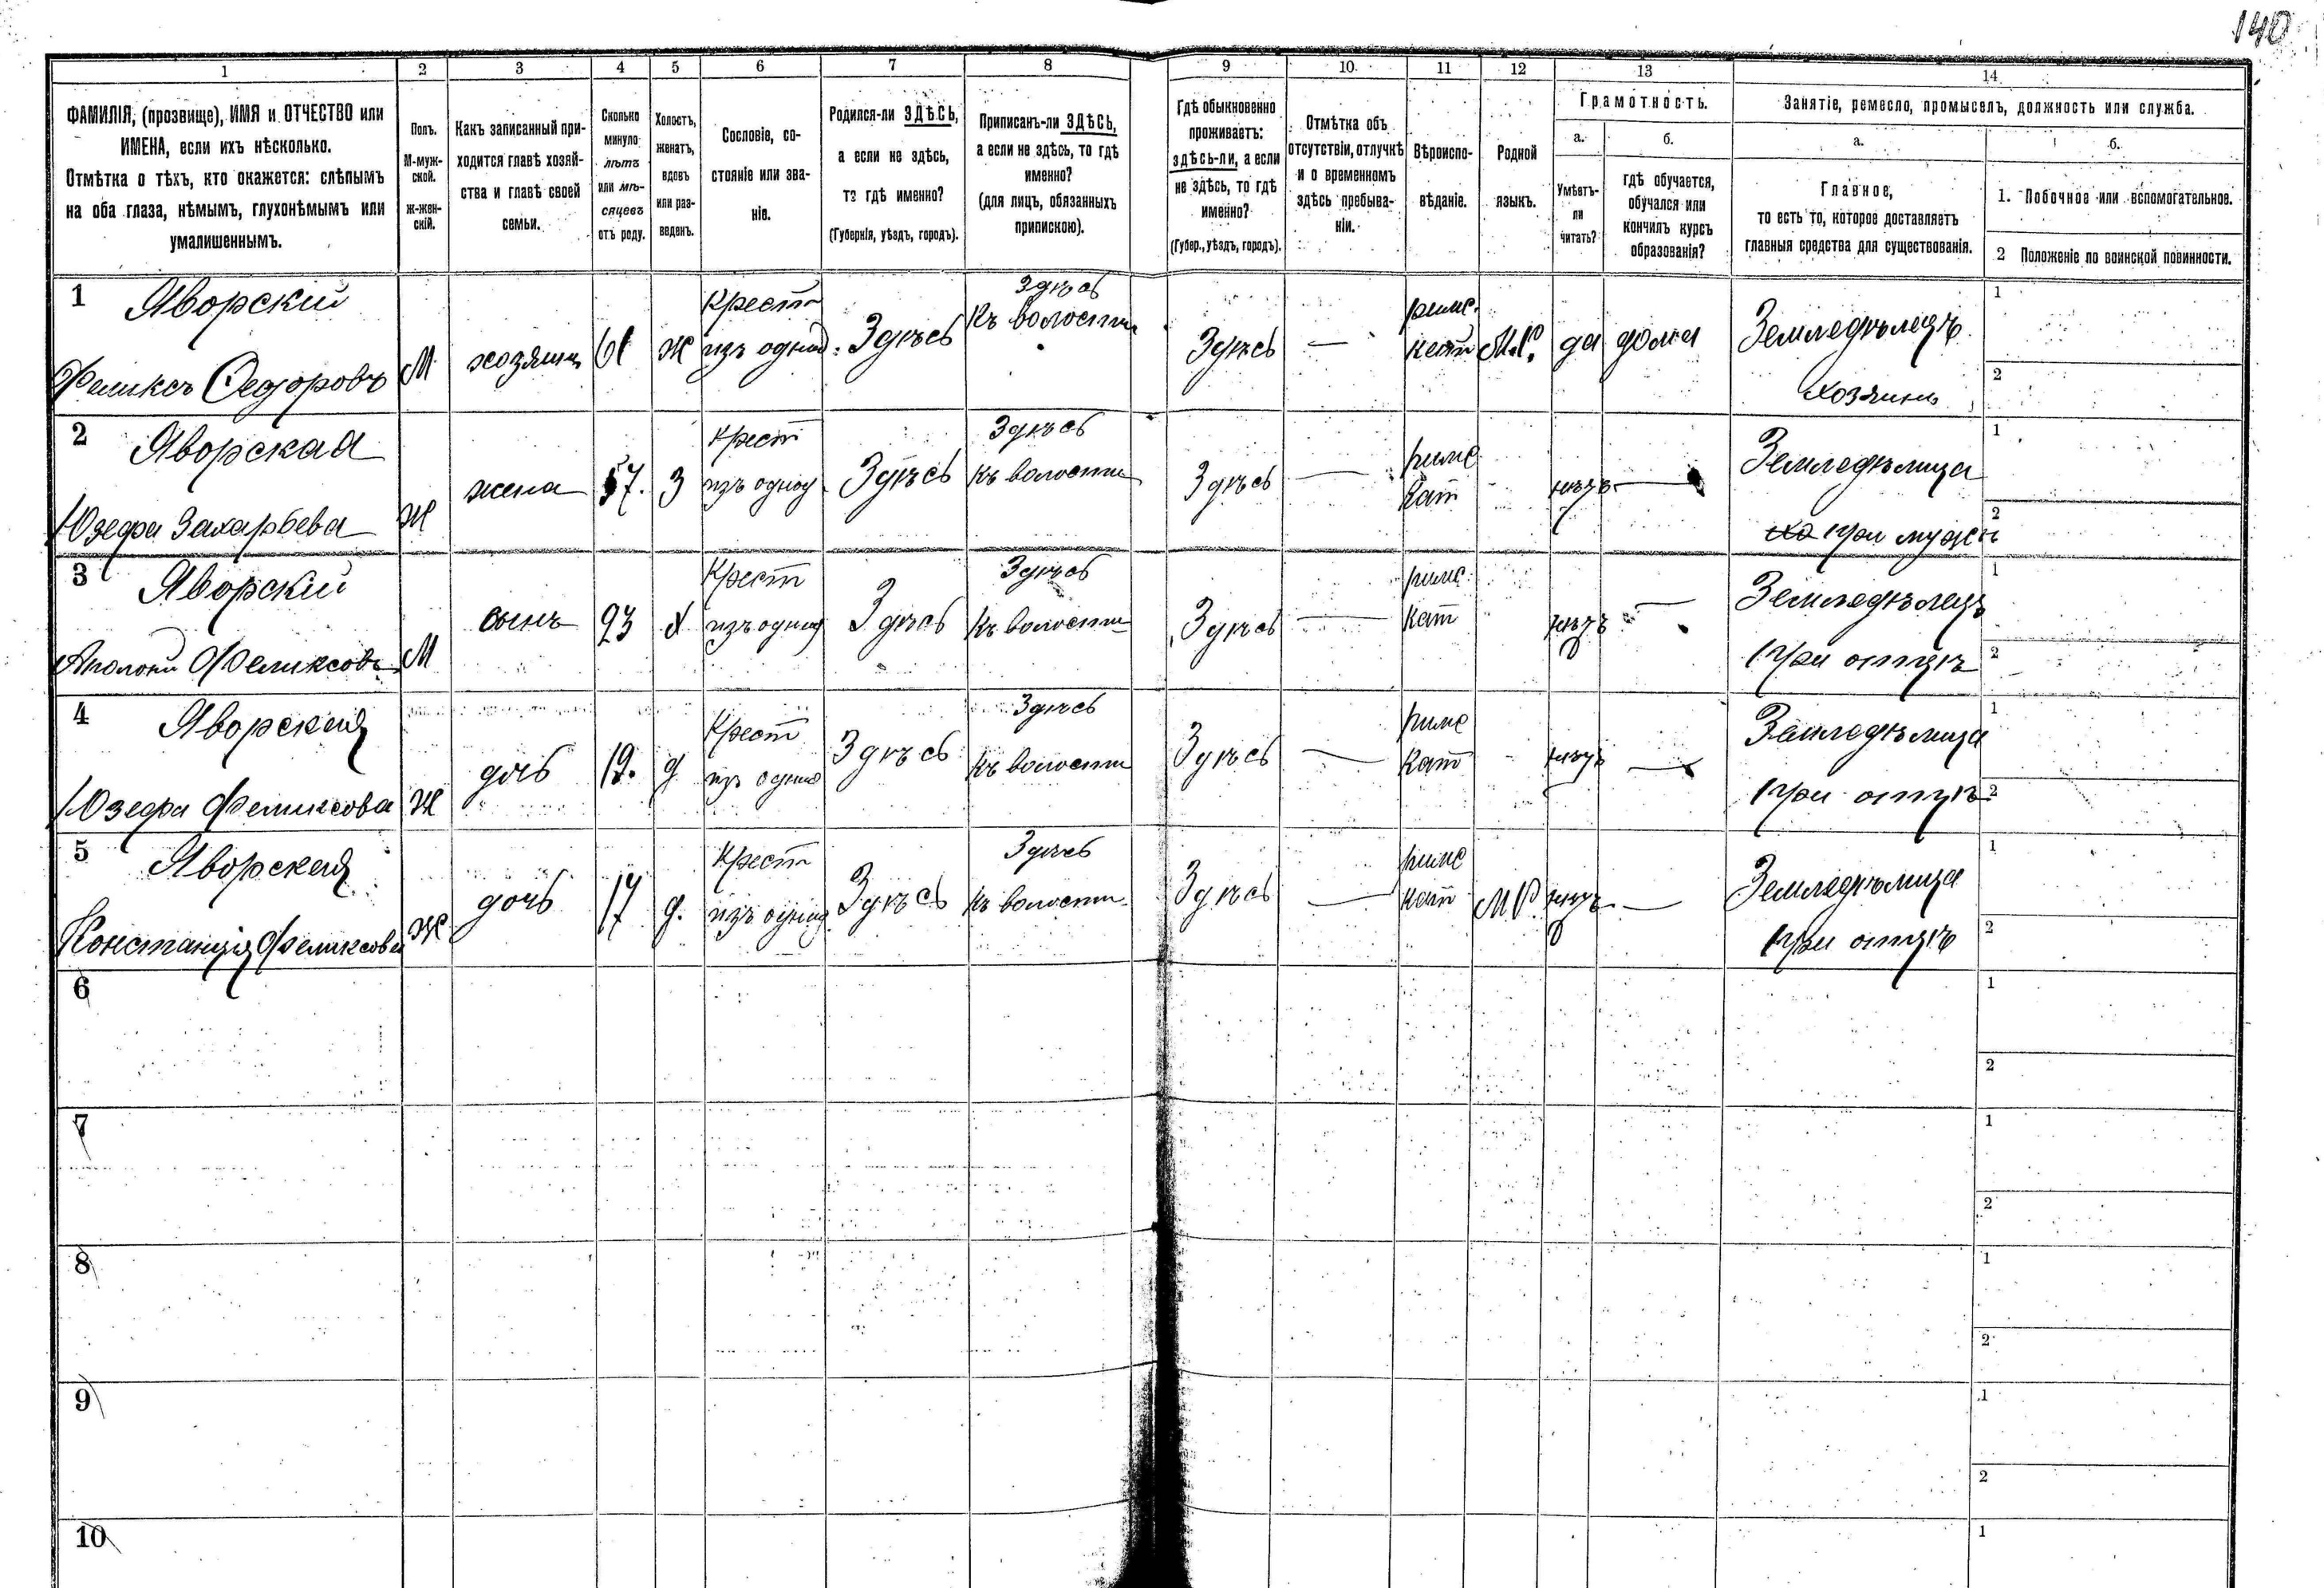 140
1 2 3 4 5 6 7 8 9 10. 11 12 13 14
ФАМИЛІЯ, (прозвище), ИМЯ и ОТЧЕСТВО или
ИМЕНА, если ихъ нѣсколько.
Отмѣтка о тѣхъ, кто окажется: слѣпымъ
на оба глаза, нѣмымъ, глухонѣмымъ или
умалишеннымъ.
Полъ.
М-муж-
ской.
Ж-жен-
скій.
Какъ записанный при-
ходится главѣ хозяй-
ства и главѣ своей
семьи.
Сколько
минуло
лѣтъ
или мѣ-
сяцевъ
отъ роду.
Холостъ,
женатъ,
вдовъ
или раз-
веденъ.
Сословіе, со-
стояніе или зва-
ніе.
Родился-ли ЗДѢСЬ,
а если не здѣсь,
то гдѣ именно?
(Губернія, уѣздъ, городъ).
Приписанъ-ли ЗДѢСЬ,
а если не здѣсь, то гдѣ
именно?
(для лицъ, обязанныхъ
припискою).
Гдѣ обыкновенно
проживаетъ:
здѣсь-ли, а если
не здѣсь, то гдѣ
именно?
(Губер., уѣздъ, городъ).
Отмѣтка объ
отсутствіи, отлучкѣ
и о временномъ
здѣсь пребыва-
ніи.
Вѣроиспо-
вѣданіе.
Родной
языкъ.
Грамотность.
а.
Умѣетъ-
ли
читать?
б.
гдѣ обучается,
обучался или
кончилъ курсъ
образованія?
Занятіе, ремесло, промыселъ, должность или служба.
а.
Главное,
то есть то, которое доставляетъ
главныя средства для существованія.
б.
1. Побочное или вспомогательное.
2 Положеніе по воинской повинности.
1 Яворский
Феликсъ Федоровъ
М
хозяинъ
61
ж
Крест
изъ однод.
Здѣсь
Здѣсь
къ волости
Здѣсь
—
римс.
кат
М.Р.
да
дома
Земледѣлецъ
хозяинъ
1
2
2 Яворская
Юзефа Захарьева
Ж
жена
57.
З
Крест
изъ однод
Здѣсь
Здѣсь
къ волости
Здѣсь
—
римс
кат
нѣтъ
—
Земледѣлица
при мужѣ
1
2
3 Яворский
Аполони Феликсовъ
М
сынъ
23
х
Крест
изъ однод
Здѣсь
Здѣсь
къ волости
Здѣсь
—
римс
кат
нѣтъ
—
Земледѣлецъ
при отцѣ
1
2
4 Яворская
Юзефа Феликсова
Ж
дочь
19.
д
Крест
изъ однод
Здѣсь
Здѣсь
къ волости
Здѣсь
—
римс
кат
нѣтъ
—
Земледѣлица
при отцѣ
1
2
5 Яворская
Констанція Феликсова
Ж
дочь
17
д.
Крест
изъ однод
Здѣсь
Здѣсь
къ волости
Здѣсь
—
римс
кат
М.Р.
нѣтъ
—
Земледѣлица
при отцѣ
1
2
6
1
2
7
1
2
8
1
2
9
1
2
10
1